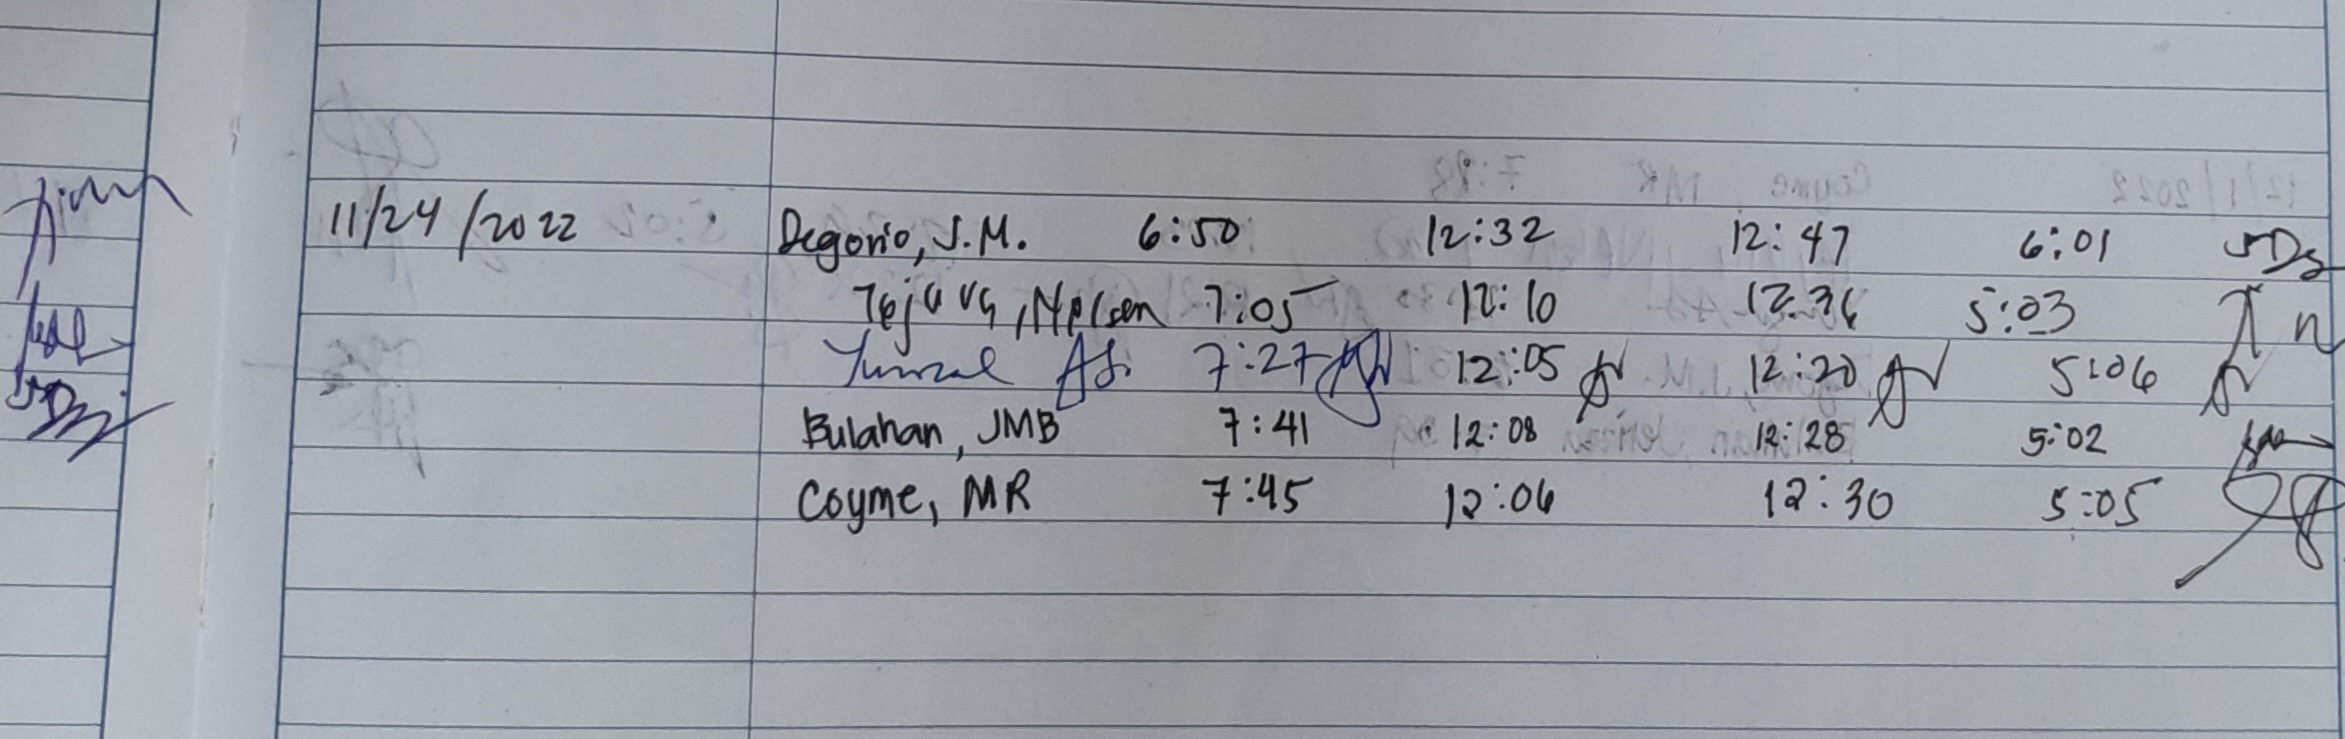 11/24/2022 Degorio, J.M. 6:50 12:32 12:47 6:01
Nelsen 7:05 12:10 5:03
7:27 12:05 12:20 5:06
Bulahan, JMB 7:41 12:08 12:28 5:02
Coyme, MR 7:45 12:06 12:30 5:05